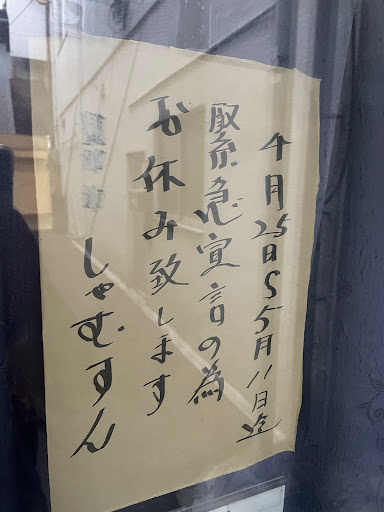 4月25日〜5月11日迄
緊急宣言の為
お休み致します
しゃむすん